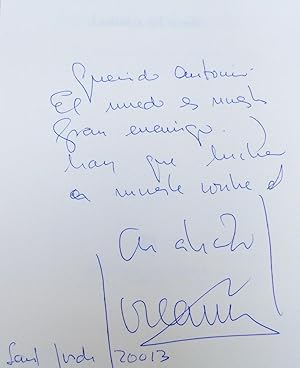 Querido Antonio:
El miedo es nuestro
gran enemigo.
hay que luchar
a muerte contra él
Un abrazo
Sant Jordi 20013